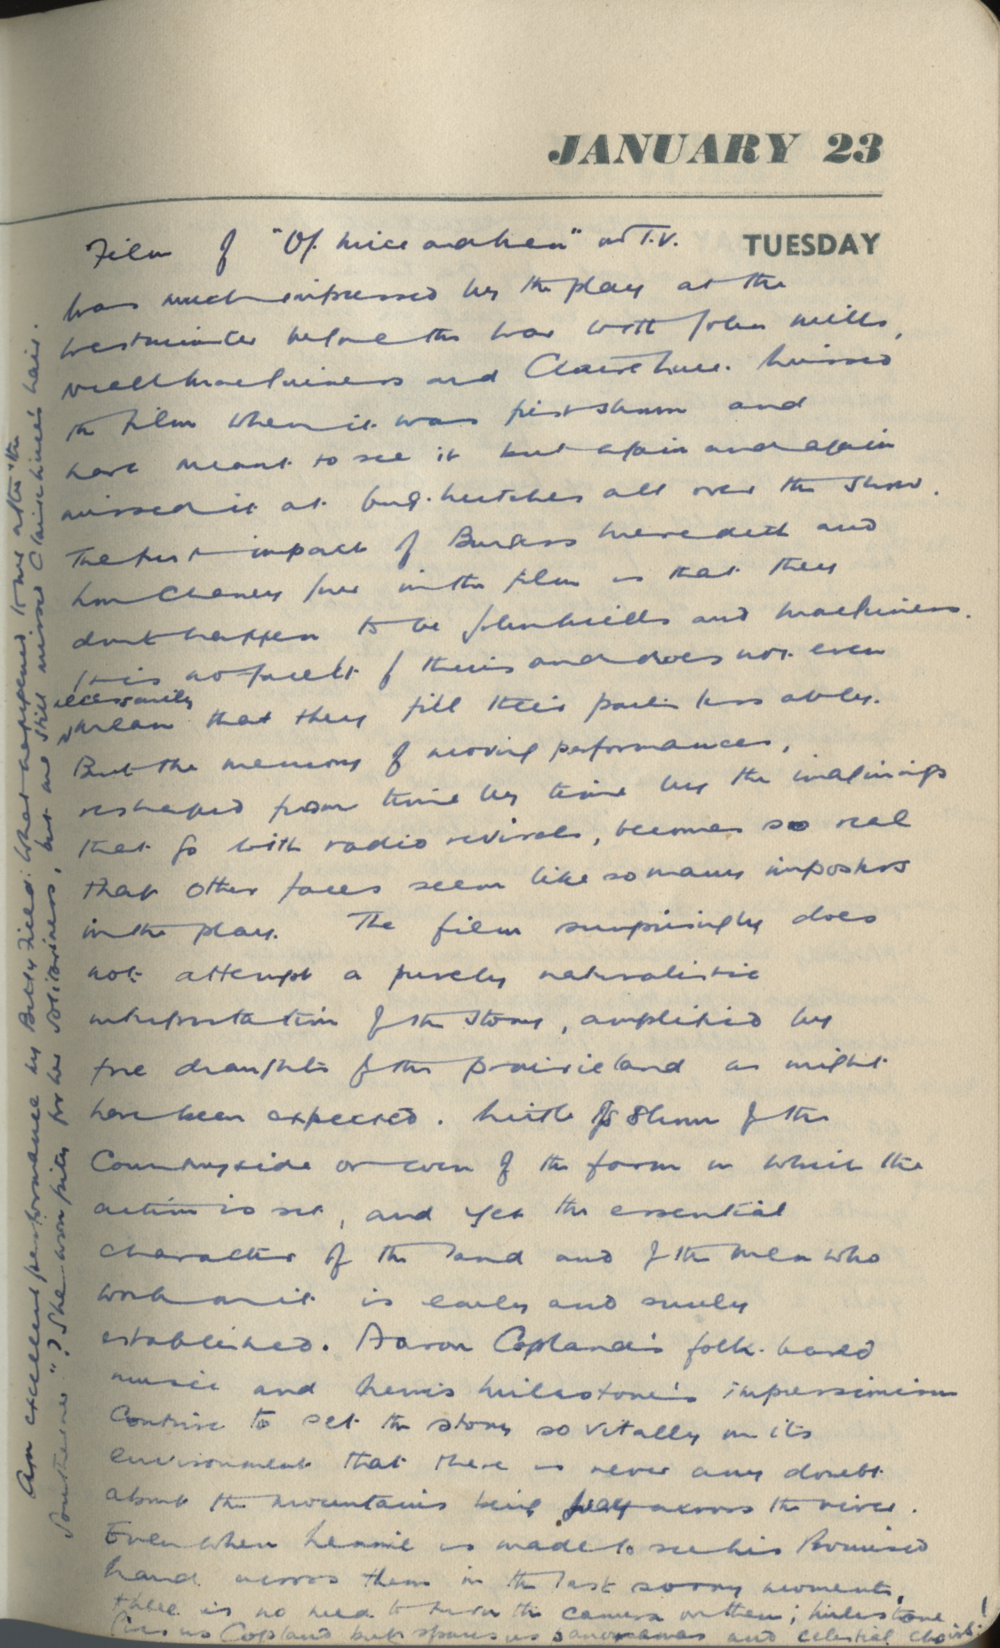 JANUARY 23
TUESDAY
Film of "Of Mice and Men" on T.V.
Was much impressed by the play at the
Westminster before the war with John Mills,
Niall MacGinnis and Claire Luce. Missed
the film when it was first shown and
have meant to see it but again and again
missed it at bug-hutches all over the show.
The first impact of Burgess Meredith and
Lon Chaney Jnr in the film is that they
don't happen to be John Mills and MacGinnis.
It is no fault of theirs and does not even
necessarily
mean that they fill their parts less ably.
But the memory of moving performances,
reshaped from time by time by the imaginings
that go with radio revivals, becomes so real
that other faces seem like so many impostors
in the play. The film surprisingly does
not attempt a purely naturalistic
interpretation of the story, amplified by
the draughts of the prairieland as might
have been expected. Little is shown of the
Countryside or even of the farm in which the
action is set, and yet the essential
character of the land and of the men who
work on it is early and surely
established. Aaron Copland's folk-based
music and Lewis Milestone's impressionism
contrive to set the story so vitally in its
environment that there is never any doubt
about the mountains being just across the river.
Even when Lennie is made to see his Promised
Land across them in the last sorry moments,
there is no need to turn the camera on them; Milestone
gives us Copland but spares us panoramas and celestial choirs!
An excellent performance by Betty Field. What happened to me after "the
Southerner"? She won pity for her solitariness, but one still missed Claire Luce's hair.